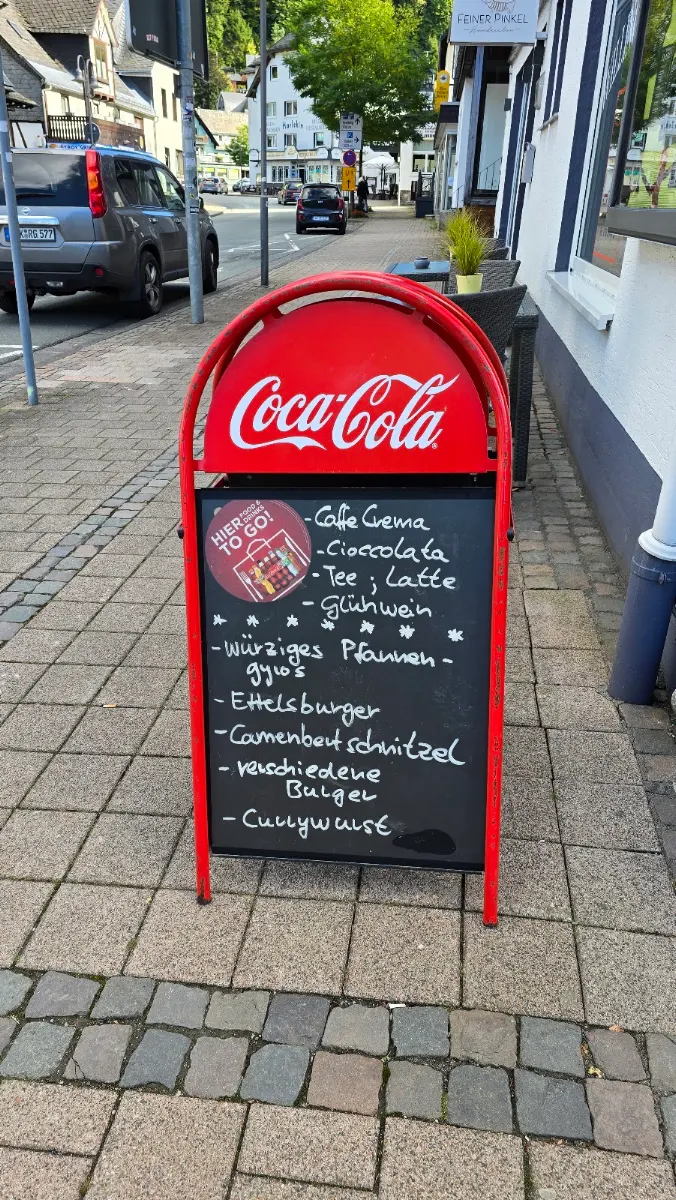 FEINER PINKEL
Coca-Cola
HIER FOOD & DRINKS
TO GO!
- Caffe Crema
- Cioccolata
- Tee ; Latte
- Glühwein
- würziges Pfannen -
gyros
- Ettelsburger
- Camenbert schnitzel
- verschiedene
Burger
- Currywurst
RG 577